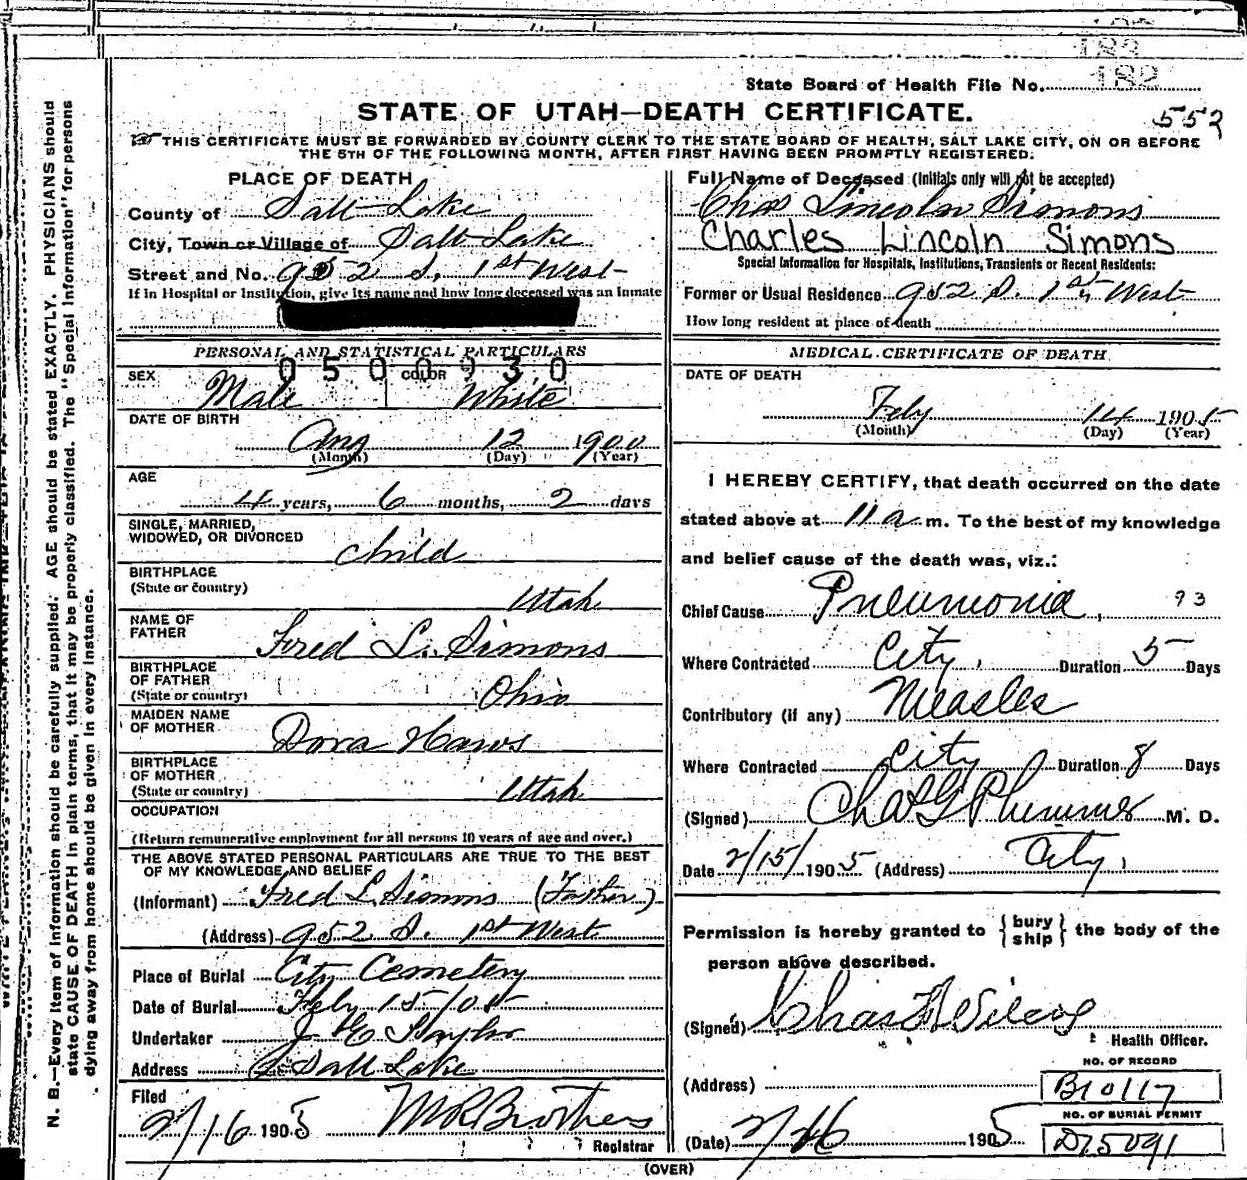 182
State Board of Health File No. 182
STATE OF UTAH—DEATH CERTIFICATE.
552
THIS CERTIFICATE MUST BE FORWARDED BY COUNTY CLERK TO THE STATE BOARD OF HEALTH, SALT LAKE CITY, ON OR BEFORE
THE 5TH OF THE FOLLOWING MONTH, AFTER FIRST HAVING BEEN PROMPTLY REGISTERED.
N. B.—Every item of information should be carefully supplied. AGE should be stated EXACTLY. PHYSICIANS should
state CAUSE OF DEATH in plain terms, that it may be properly classified. The "Special Information" for persons
dying away from home should be given in every instance.
PLACE OF DEATH
County of Salt Lake
City, Town or Village of Salt Lake
Street and No. 952 S. 1st West
If in Hospital or Institution, give its name and how long deceased was an inmate
PERSONAL AND STATISTICAL PARTICULARS
0500930
SEX Male COLOR White
DATE OF BIRTH
Aug 12 1900
(Month) (Day) (Year)
AGE
4 years, 6 months, 2 days
SINGLE, MARRIED,
WIDOWED, OR DIVORCED
child
BIRTHPLACE
(State or country)
Utah
NAME OF
FATHER
Fred L. Simons
BIRTHPLACE
OF FATHER
(State or country)
Ohio
MAIDEN NAME
OF MOTHER
Dora Haws
BIRTHPLACE
OF MOTHER
(State or country)
Utah
OCCUPATION
(Return remunerative employment for all persons 10 years of age and over.)
THE ABOVE STATED PERSONAL PARTICULARS ARE TRUE TO THE BEST
OF MY KNOWLEDGE AND BELIEF
(Informant) Fred L Simons (Father)
(Address) 952 S. 1st West
Place of Burial City Cemetery
Date of Burial Feby 15/05
Undertaker J E Taylor
Address Salt Lake
Filed
2/16 1905 M R Brothers
Registrar
Full Name of Deceased (Initials only will not be accepted)
Chas Lincoln Simons
Charles Lincoln Simons
Special Information for Hospitals, Institutions, Transients or Recent Residents:
Former or Usual Residence 952 S. 1st West
How long resident at place of death
MEDICAL CERTIFICATE OF DEATH
DATE OF DEATH
Feby 14 1905
(Month) (Day) (Year)
I HEREBY CERTIFY, that death occurred on the date
stated above at 11 a. m. To the best of my knowledge
and belief cause of the death was, viz.:
Chief Cause Pneumonia, 93
Where Contracted City, Duration 5 Days
Contributory (if any) Measles
Where Contracted City Duration 8 Days
(Signed) Chas G Plummer M. D.
Date 2/15/ 1905 (Address) City,
Permission is hereby granted to {bury ship} the body of the
person above described.
(Signed) Chas
Health Officer.
NO. OF RECORD
(Address) B10117
NO. OF BURIAL PERMIT
(Date) 2/16 1905 D15091
(OVER)